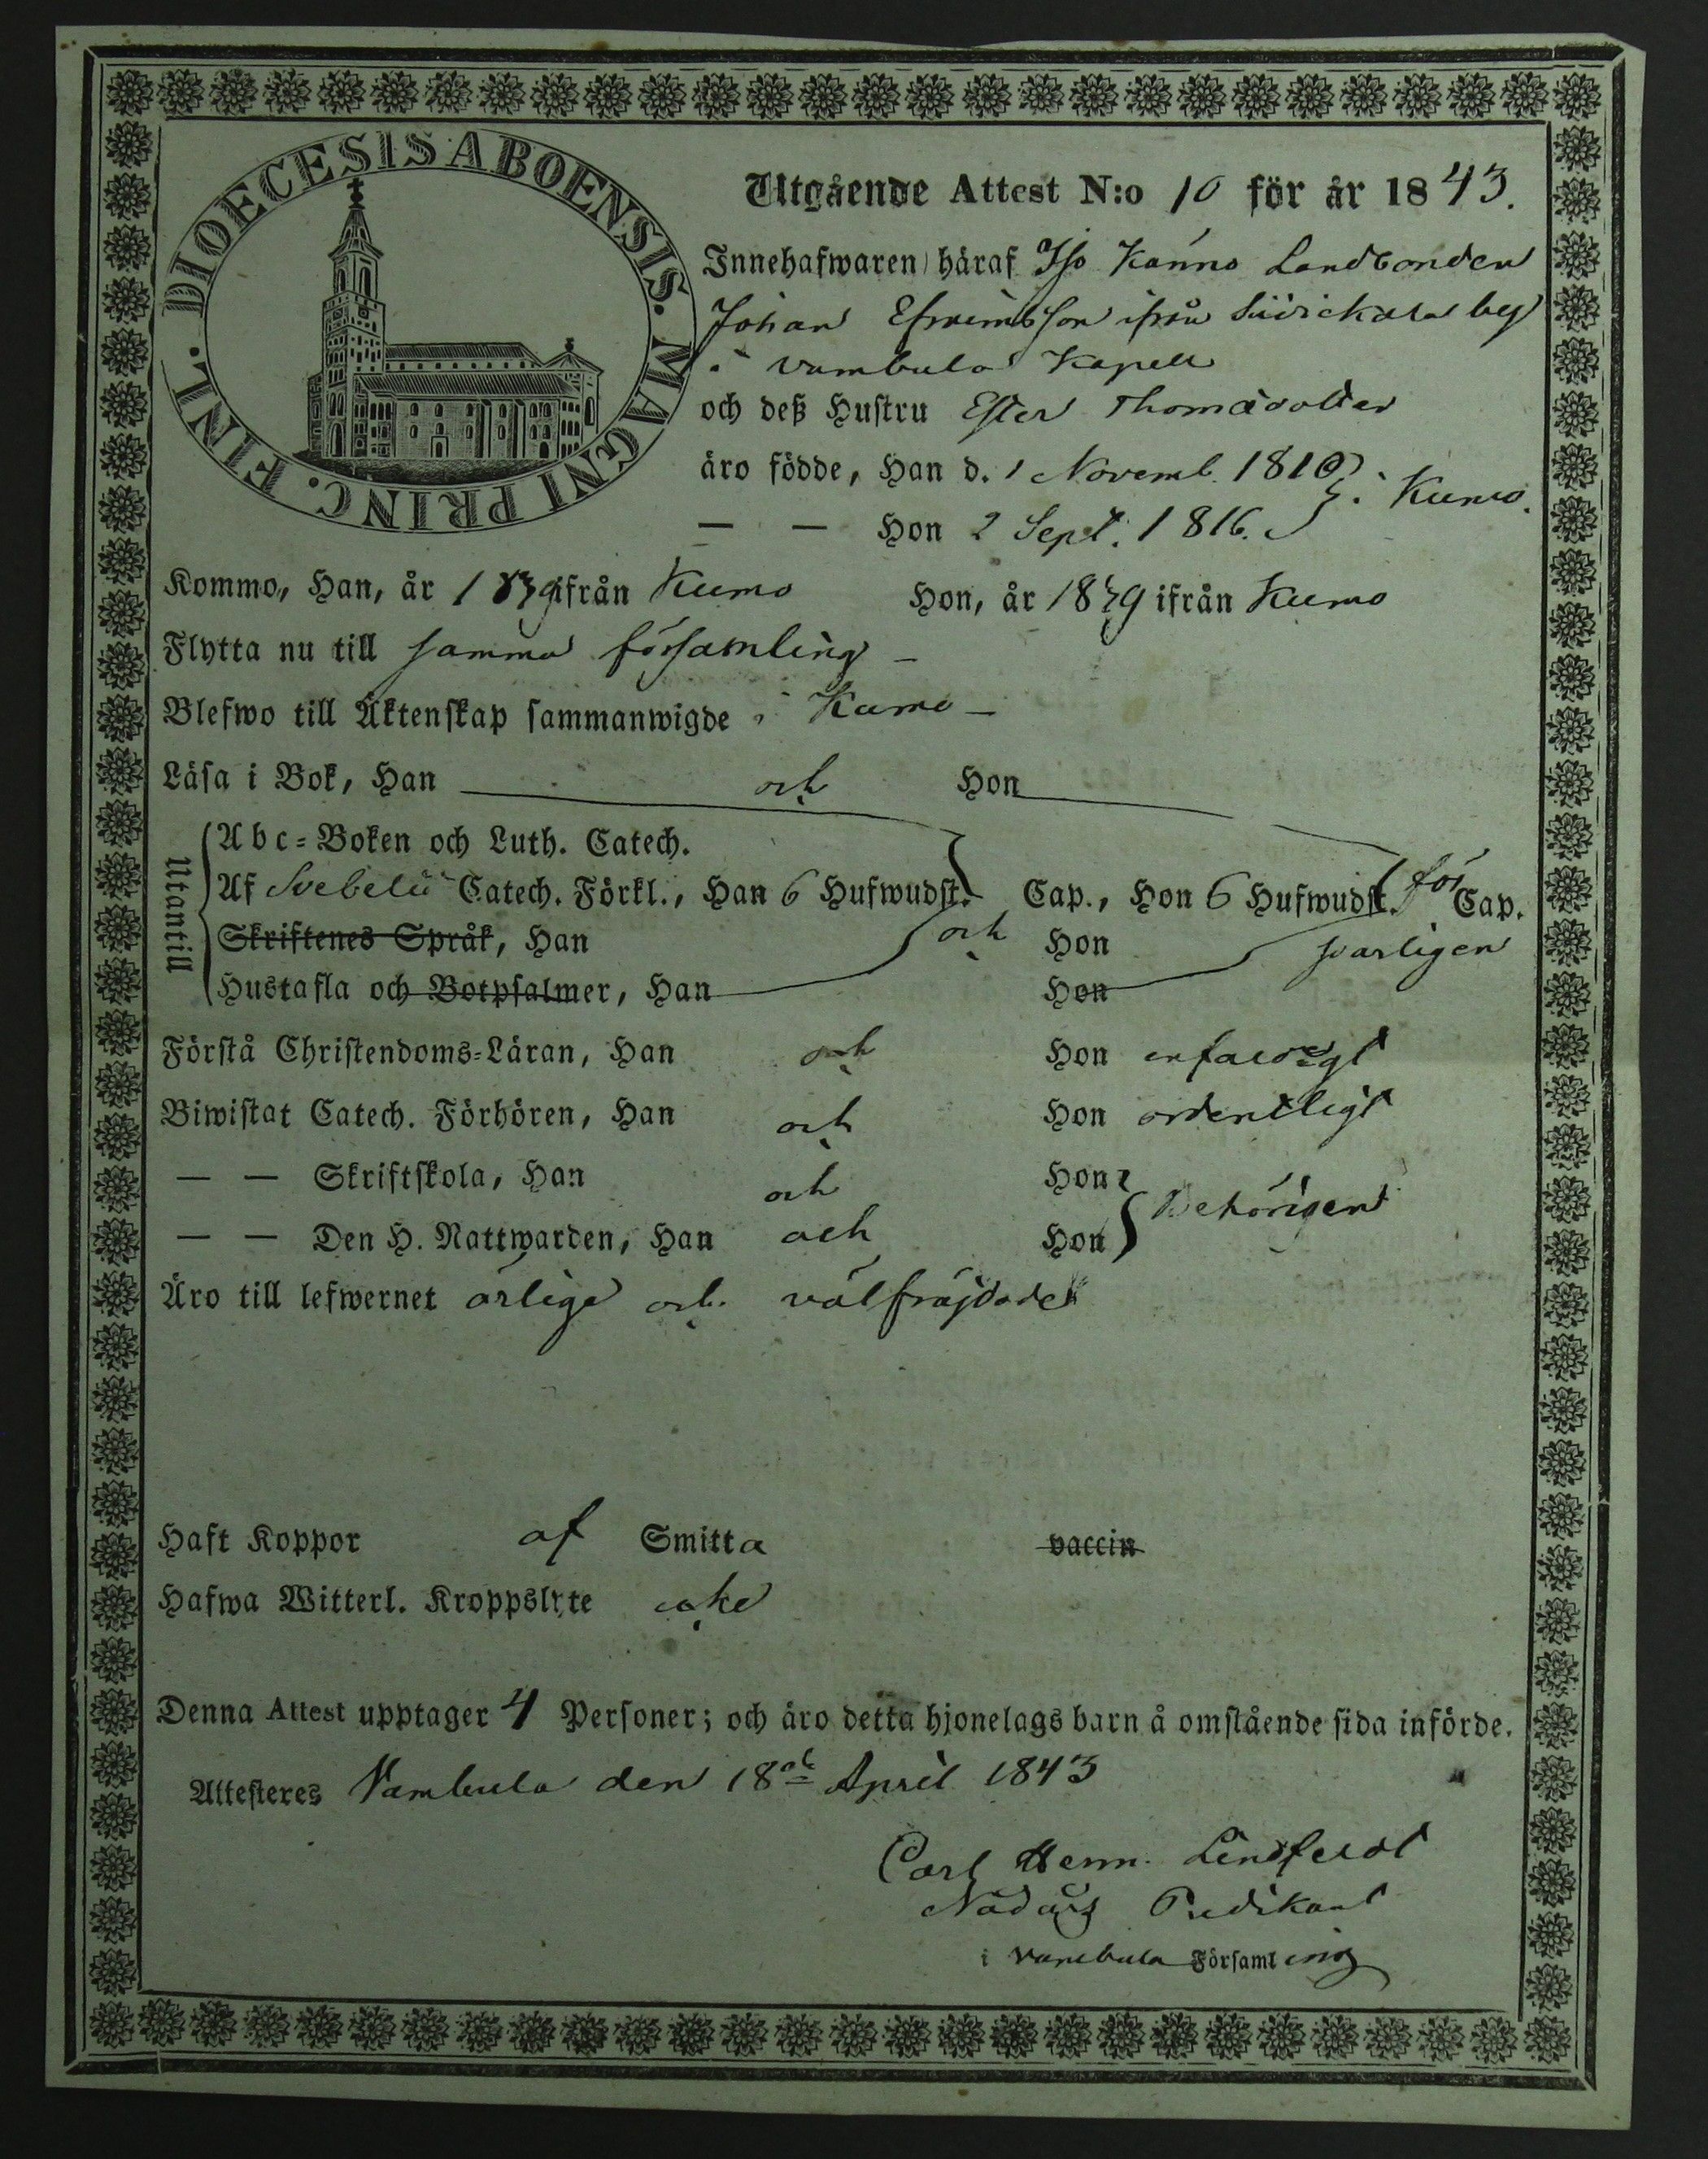 DIOECESIS ABOENSIS. MAGNI PRINC. FINL.
Utgående Attest N:o 10 för år 1843.
Innehafwaren häraf Iso Kånno Landbonden
Johan Efraimsson ifrån Säkylä by
i Vambula Kapell
och deß Hustru Ester Thomædotter
äro födde, Han d. 1 Novemb. 1810
— — Hon 2 Sept. 1816. } i Kumo.
Kommo, Han, år 1839 ifrån Kumo Hon, år 1839 ifrån Kumo
Flytta nu till samma församling –
Blefwo till Äktenskap sammanwigde i Kumo –
Läsa i Bok, Han och Hon
Utantill
Abc-Boken och Luth. Catech.
Af Svebelii Catech. Förkl., Han 6 Hufwudst. Cap., Hon 6 Hufwudst. för Cap.
Skriftenes Språk, Han och Hon svarligen
Hustafla och Botpsalmer, Han Hon
Förstå Christendoms-Läran, Han och Hon enfaldigt
Biwistat Catech. Förhören, Han och Hon ordentligt
— — Skriftskola, Han och Hon
— — Den H. Nattwarden, Han och Hon } behörigen
Äro till lefwernet ärliga och välfräjdade
Haft Koppor af Smitta vaccin
Hafwa Witterl. Kroppslyte icke
Denna Attest upptager 4 Personer; och äro detta hjonelags barn å omstående sida införde.
Attesteres Vambula den 18de April 1843
Carl Herm. Lindfeldt
Nådårs Predikant
i Vambula Församling